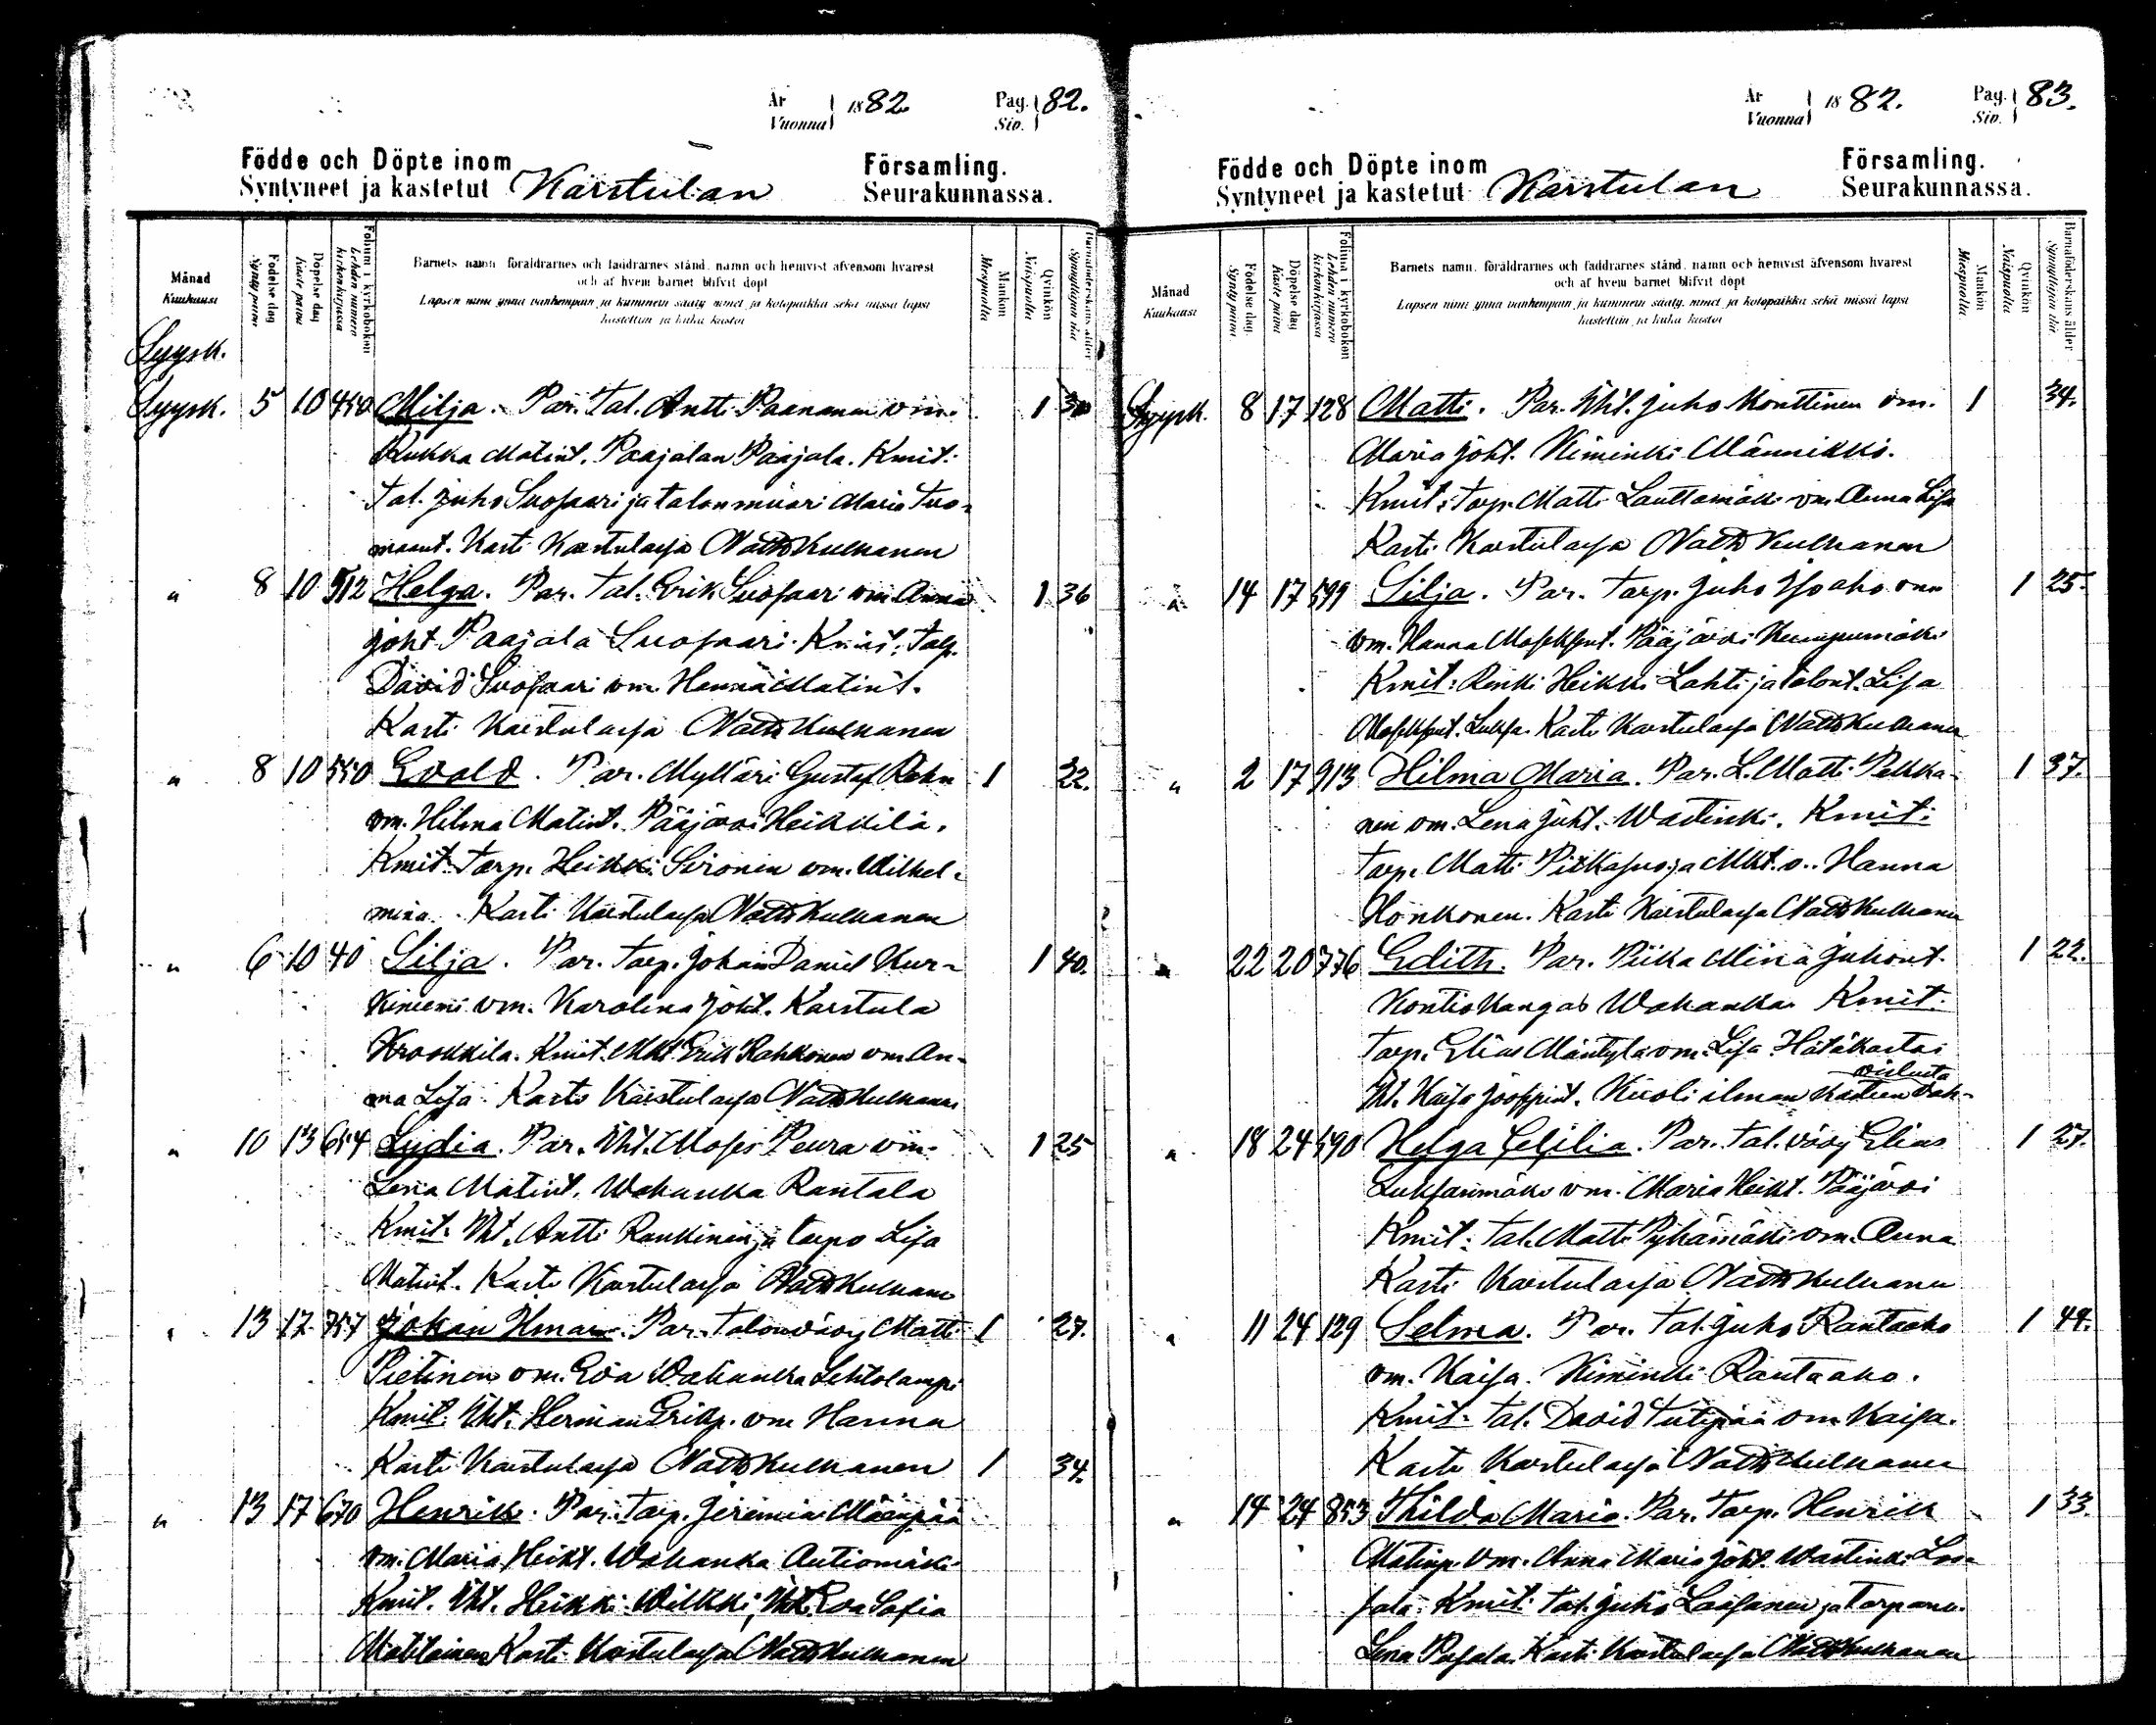 År Vuonna 1882. Pag. Siv. 82.
Födde och Döpte inom Församling.
Syntyneet ja kastetut Karstulan Seurakunnassa.
Månad Kuukausi
Födelse dag Synty päivä
Döpelse dag Kaste päivä
Folium i kyrkoboken Lehden numero kirkonkirjassa
Barnets namn, föräldrarnes och faddrarnes stånd, namn och hemvist äfvensom hvarest
och af hvem barnet blifvit döpt
Lapsen nimi ynnä vanhempain ja kummein sääty, nimet ja kotopaikka sekä missä lapsi
kastettiin ja kuka kastoi
Mankön Miespuolia
Qvinkön Naispuolia
Barnaföderskans ålder Synnyttäjän ikä
Syysk.
Syysk. 5 10 450 Milja. Par. Tal. Antti Paananen vm. 1 30
Kukka Matint. Paajalan Paajala. Kmit:
Tal. Juho Suosaari ja talonmuori Maria Tuo-
maant. Kasti Karstulassa Matts Kulhanen
" 8 10 512 Helga. Par. Tal. Erik Suosaari vm. Anna 1 36
Joht. Paajala Suosaari. Kmit: Talp.
David Suosaari vm. Henna Matint.
Kasti Karstulassa Matts Kulhanen
" 8 10 550 Evald. Par. Mylläri Gustaf Rahn 1 22.
vm. Hilma Matint. Pääjärvi Heikkilä.
Kmit: Tarp. Heikki Sironen vm. Wilhel-
mina. Kasti Karstulassa Matts Kulhanen
" 6 10 40 Silja. Par. Tarp. Johan Daniel Kur- 1 40.
kiniemi vm. Karolina Joht. Karstula
Krookkila. Kmit. Mkt. Erik Rahkonen vm. An-
na Lisa. Kasti Karstulassa Matts Kulhanen
" 10 13 654 Lydia. Par. Iht. Moses Peura vm. 1 25
Lena Matint. Wahanka Rantala
Kmit. Iht. Antti Raukinen ja torpo Lisa
Matint. Kasti Karstulassa Matts Kulhanen
" 13 17 757 Johan Ilmari. Par. Talonvävy Matti 1 27.
Pietinen vm. Eva Wahanka Lehtolampi
Kmit. Iht. Herman Erikp. vm Hanna
Kasti Karstulassa Matts Kulhanen 1 34.
" 13 17 670 Henrik. Par. Tarp. Jeremias Mäenpää
vm. Maria Heikt. Wahanka Autiomäki
Kmit. Iht. Heikki Wilkki, Iht. Eva Sofia
Matilainen Kasti Karstulassa Matts Kulhanen
År Vuonna 1882. Pag. Siv. 83.
Födde och Döpte inom Församling.
Syntyneet ja kastetut Karstulan Seurakunnassa.
Månad Kuukausi
Födelse dag. Synty päivä
Döpelse dag Kaste päivä
Folium i kyrkoboken Lehden numero kirkonkirjassa
Barnets namn, föräldrarnes och faddrarnes stånd, namn och hemvist äfvensom hvarest
och af hvem barnet blifvit döpt
Lapsen nimi ynnä vanhempain ja kummein sääty, nimet ja kotopaikka sekä missä lapsi
kastettiin ja kuka kastoi
Mankön Miespuolia
Qvinkön Naispuolia
Barnaföderskans ålder Synnyttäjän ikä
Syysk. 8 17 128 Matti. Par. Iht. Juho Konttinen vm. 1 34.
Maria Joht. Kiminki Männikkö.
Kmit: Tarp. Matti Lauttamäki vm. Anna Lisa
Kasti Karstulassa Matts Kulhanen
" 14 17 599 Silja. Par. Tarp. Juho Isoaho 1 25.
vm. Hanna Pääjärvi Kumpumäki
Kmit: Renki Heikki Lahti ja talont. Lisa
Kasti Karstulassa Matts Kulhanen
" 2 17 913 Hilma Maria. Par. L. Matti Pekka- 1 37.
nen vm. Lena Juht. Wastinki. Kmit:
Tarp. Matti Pitkäsuo ja Mkt. v. Hanna
Honkonen. Kasti Karstulassa Matts Kulhanen
" 22 20 776 Edith. Par. Piika Miina Juhont. 1 22.
Kontiokangas Wahanka Kmit.
Tarp. Elias Mäntylä vm. Lisa. Hätäkastoi
Iht. Kaisa Kuoli ilman kasteen vah-
vistusta
" 18 24 590 Helga Cesilia. Par. Tal. vävy Elias 1 27.
Luksanmäki vm. Maria Heikt. Pääjärvi
Kmit: Tal. Matti Pyhämäki vm. Anna
Kasti Karstulassa Matts Kulhanen
" 11 24 129 Selma. Par. Tal. Juho Rantaaho 1 44.
vm. Kaisa. Kiminki Rantaaho.
Kmit: Tal. David vm Kaisa.
Kasti Karstulassa Matts Kulhanen
" 14 24 853 Thilda Maria. Par. Tarp. Henrik 1 33.
Matinp. vm. Anna Maria Joht. Wastinki
Kmit: Tal. Juho Laasanen ja Tarp.
Lena Kasti Karstulassa Matts Kulhanen